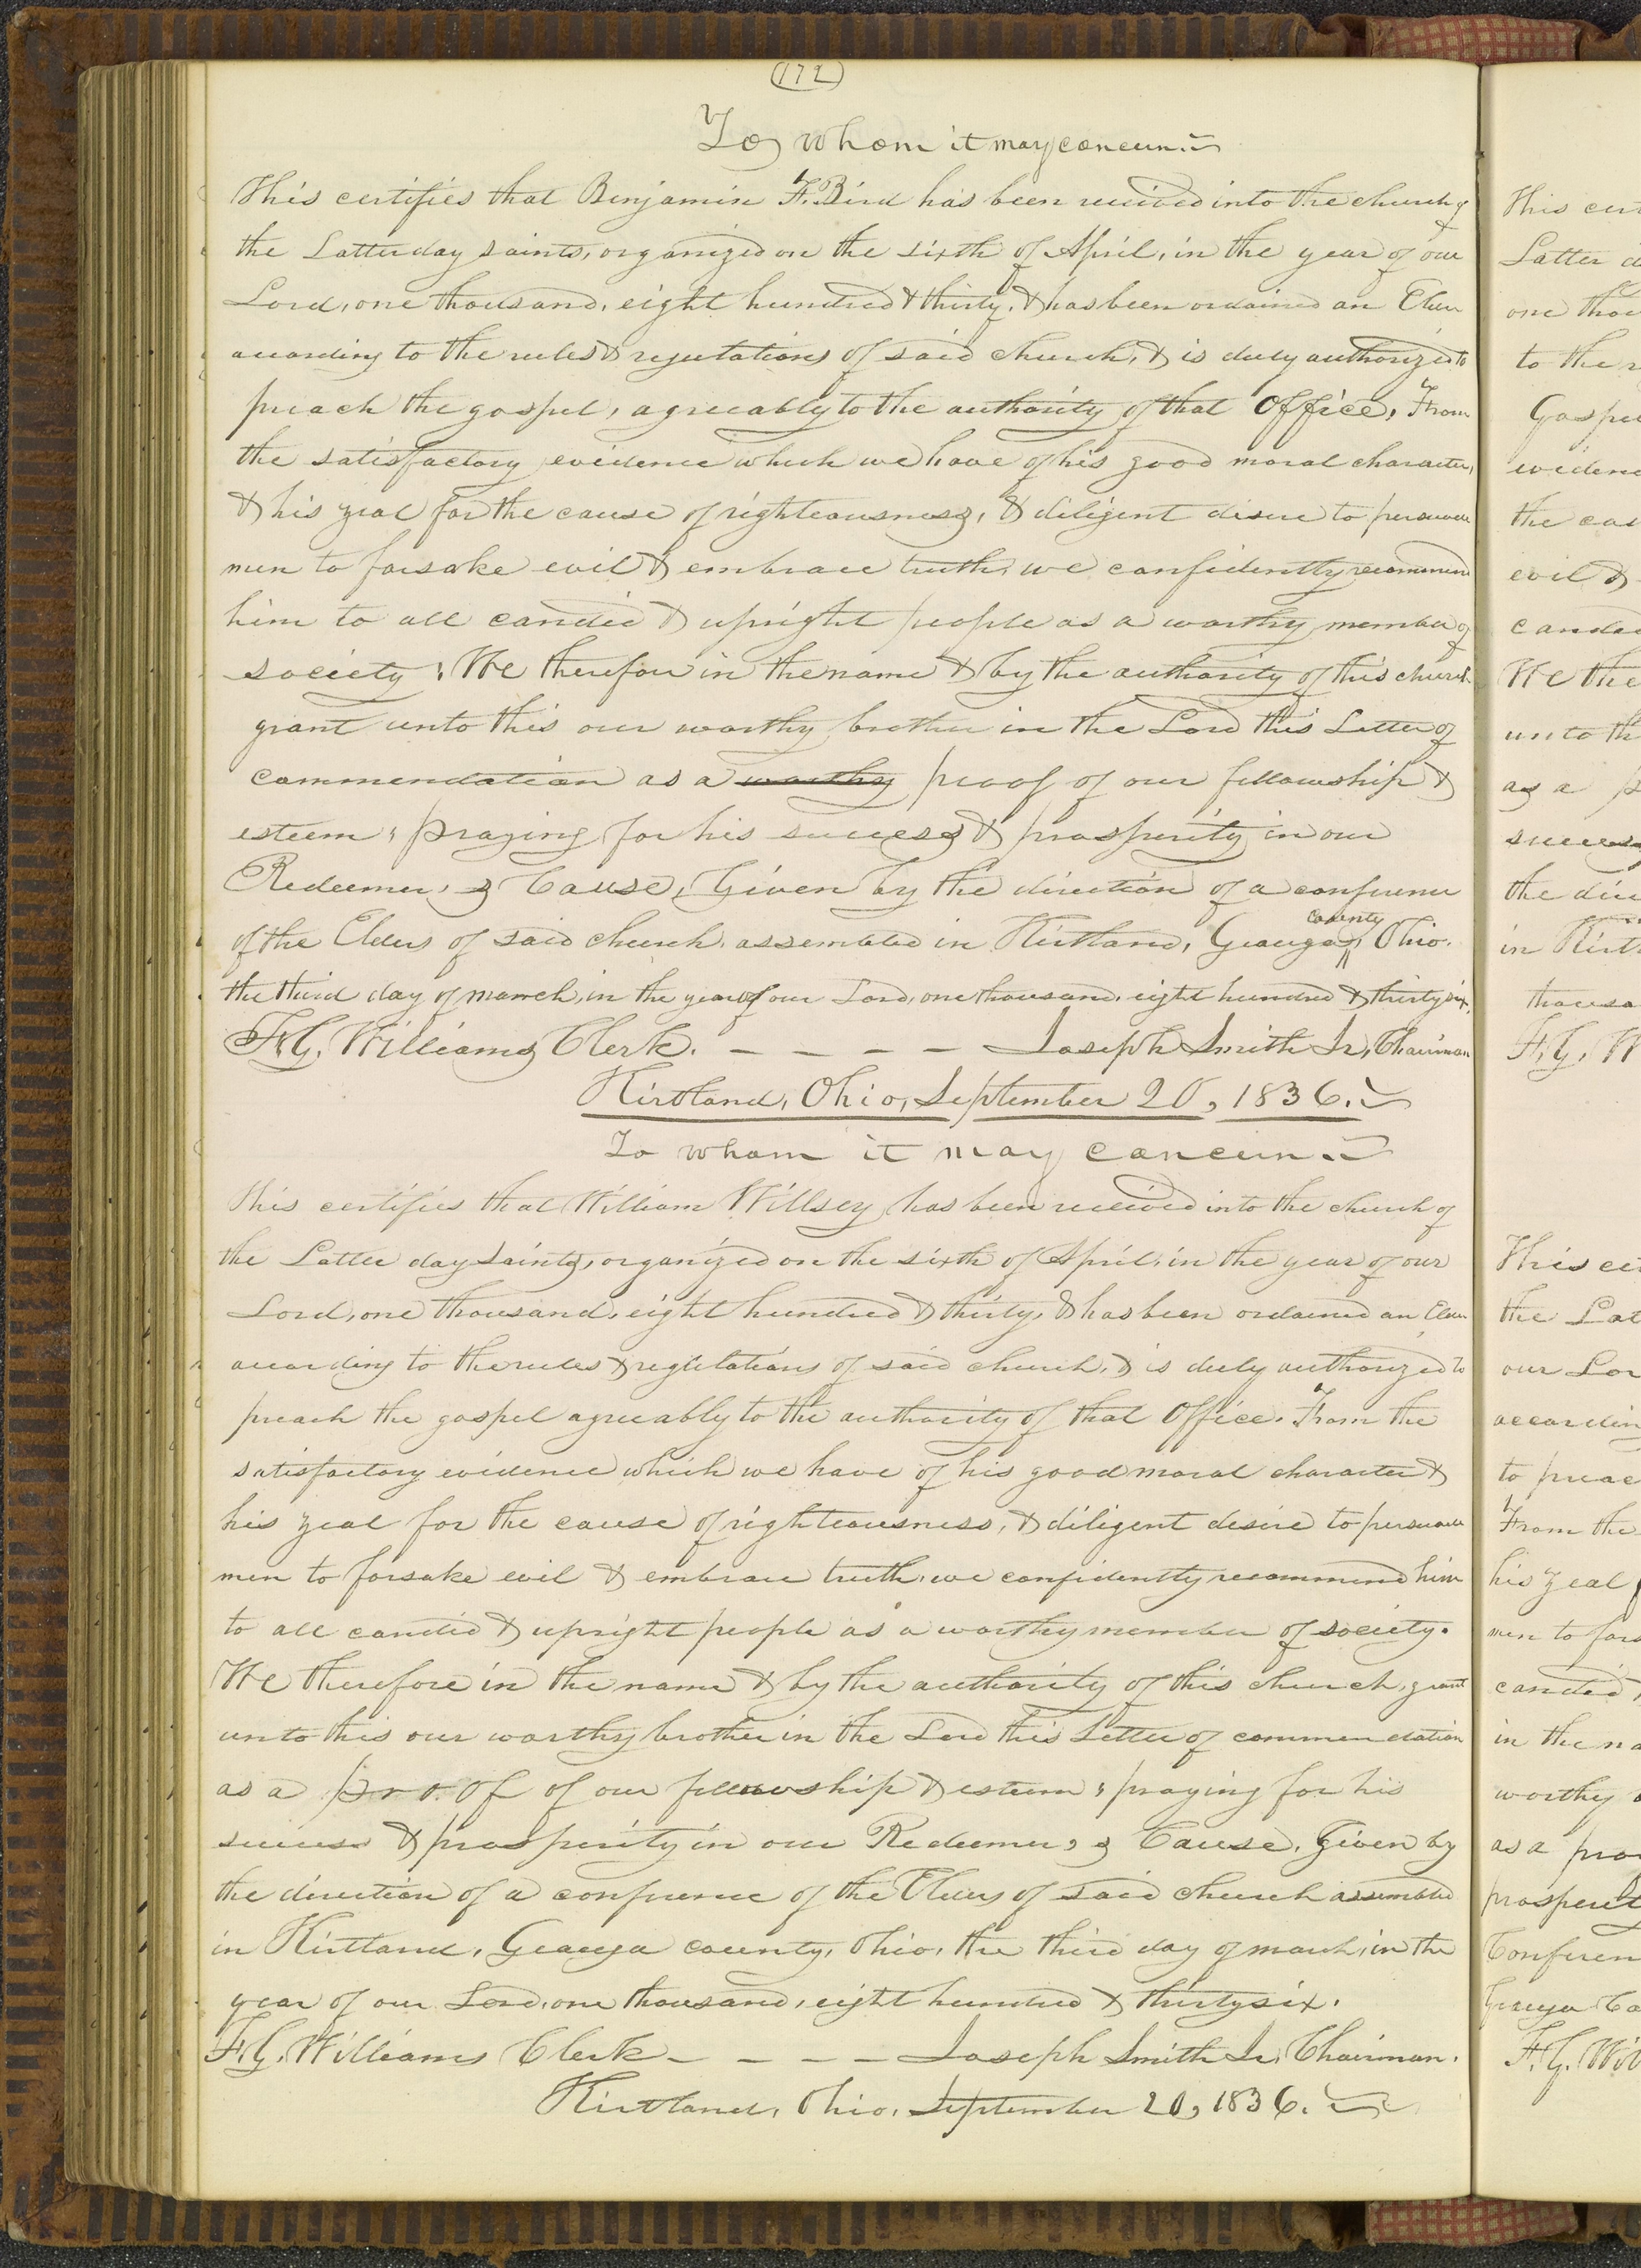 (172)
To whom it may concern.
This certifies that Benjamin F. Bird has been received into the church of
the Latterday saints, organized on the sixth of April, in the year of our
Lord, one thousand, eight hundred & thirty, & has been ordained an Elder
according to the rules & regulations of said church, & is duly authorized to
preach the gospel, agreeably to the authority of that Office, From
the satisfactory evidence which we have of his good moral character,
& his zeal for the cause of righteousness, & diligent desire to persuade
men to forsake evil & embrace truth, we confidently recommend
him to all candid & upright people as a worthy member of
society; We therefore in the name & by the authority of this church
grant unto this our worthy brother in the Lord this Letter of
commendation as a worthy proof of our fellowship &
esteem; praying for his success & prosperity in our
Redeemer,s Cause, Given by the direction of a conference
of the Elders of said church, assembled in Kirtland, Geauga county, Ohio.
the third day of march, in the year of our Lord, one thousand, eight hundred & thirty six.
F. G. Williams Clerk. — — — — Joseph Smith Jr, Chairman
Kirtland, Ohio, September 20, 1836.
To whom it may concern.
This certifies that William Willsey has been received into the church of
the Latter day saints, organized on the sixth of April, in the year of our
Lord, one thousand, eight hundred & thirty, & has been ordained an Elder
according to the rules & regulations of said church, & is duly authorized to
preach the gospel agreeably to the authority of that Office. From the
satisfactory evidence which we have of his good moral character &
his zeal for the cause of righteousness, & diligent desire to persuade
men to forsake evil & embrace truth, we confidently recommend him
to all candid & upright people as a worthy member of society.
We therefore in the name & by the authority of this church, grant
unto this our worthy brother in the Lord this Letter of commendation
as a proof of our fellowship & esteem; praying for his
success & prosperity in our Redeemer,s Cause. Given by
the direction of a conference of the Elders of said church assembled
in Kirtland, Geauga county, Ohio, the third day of march, in the
year of our Lord, one thousand, eight hundred & thirty six.
F. G. Williams Clerk — — — — Joseph Smith Jr, Chairman.
Kirtland, Ohio, September 20, 1836.
This cer
Latter d
one thou
to the r
Gospel
evidenc
the cau
evil &
candid
We the
unto th
as a p
success
the dire
in Kirt
thousa
F. G. W
This cer
the Lat
our Lor
accordin
to preac
From the
his zeal f
men to fors
candid
in the na
worthy
as a pro
prosperit
Conferen
Geauga Co
F. G. Wil